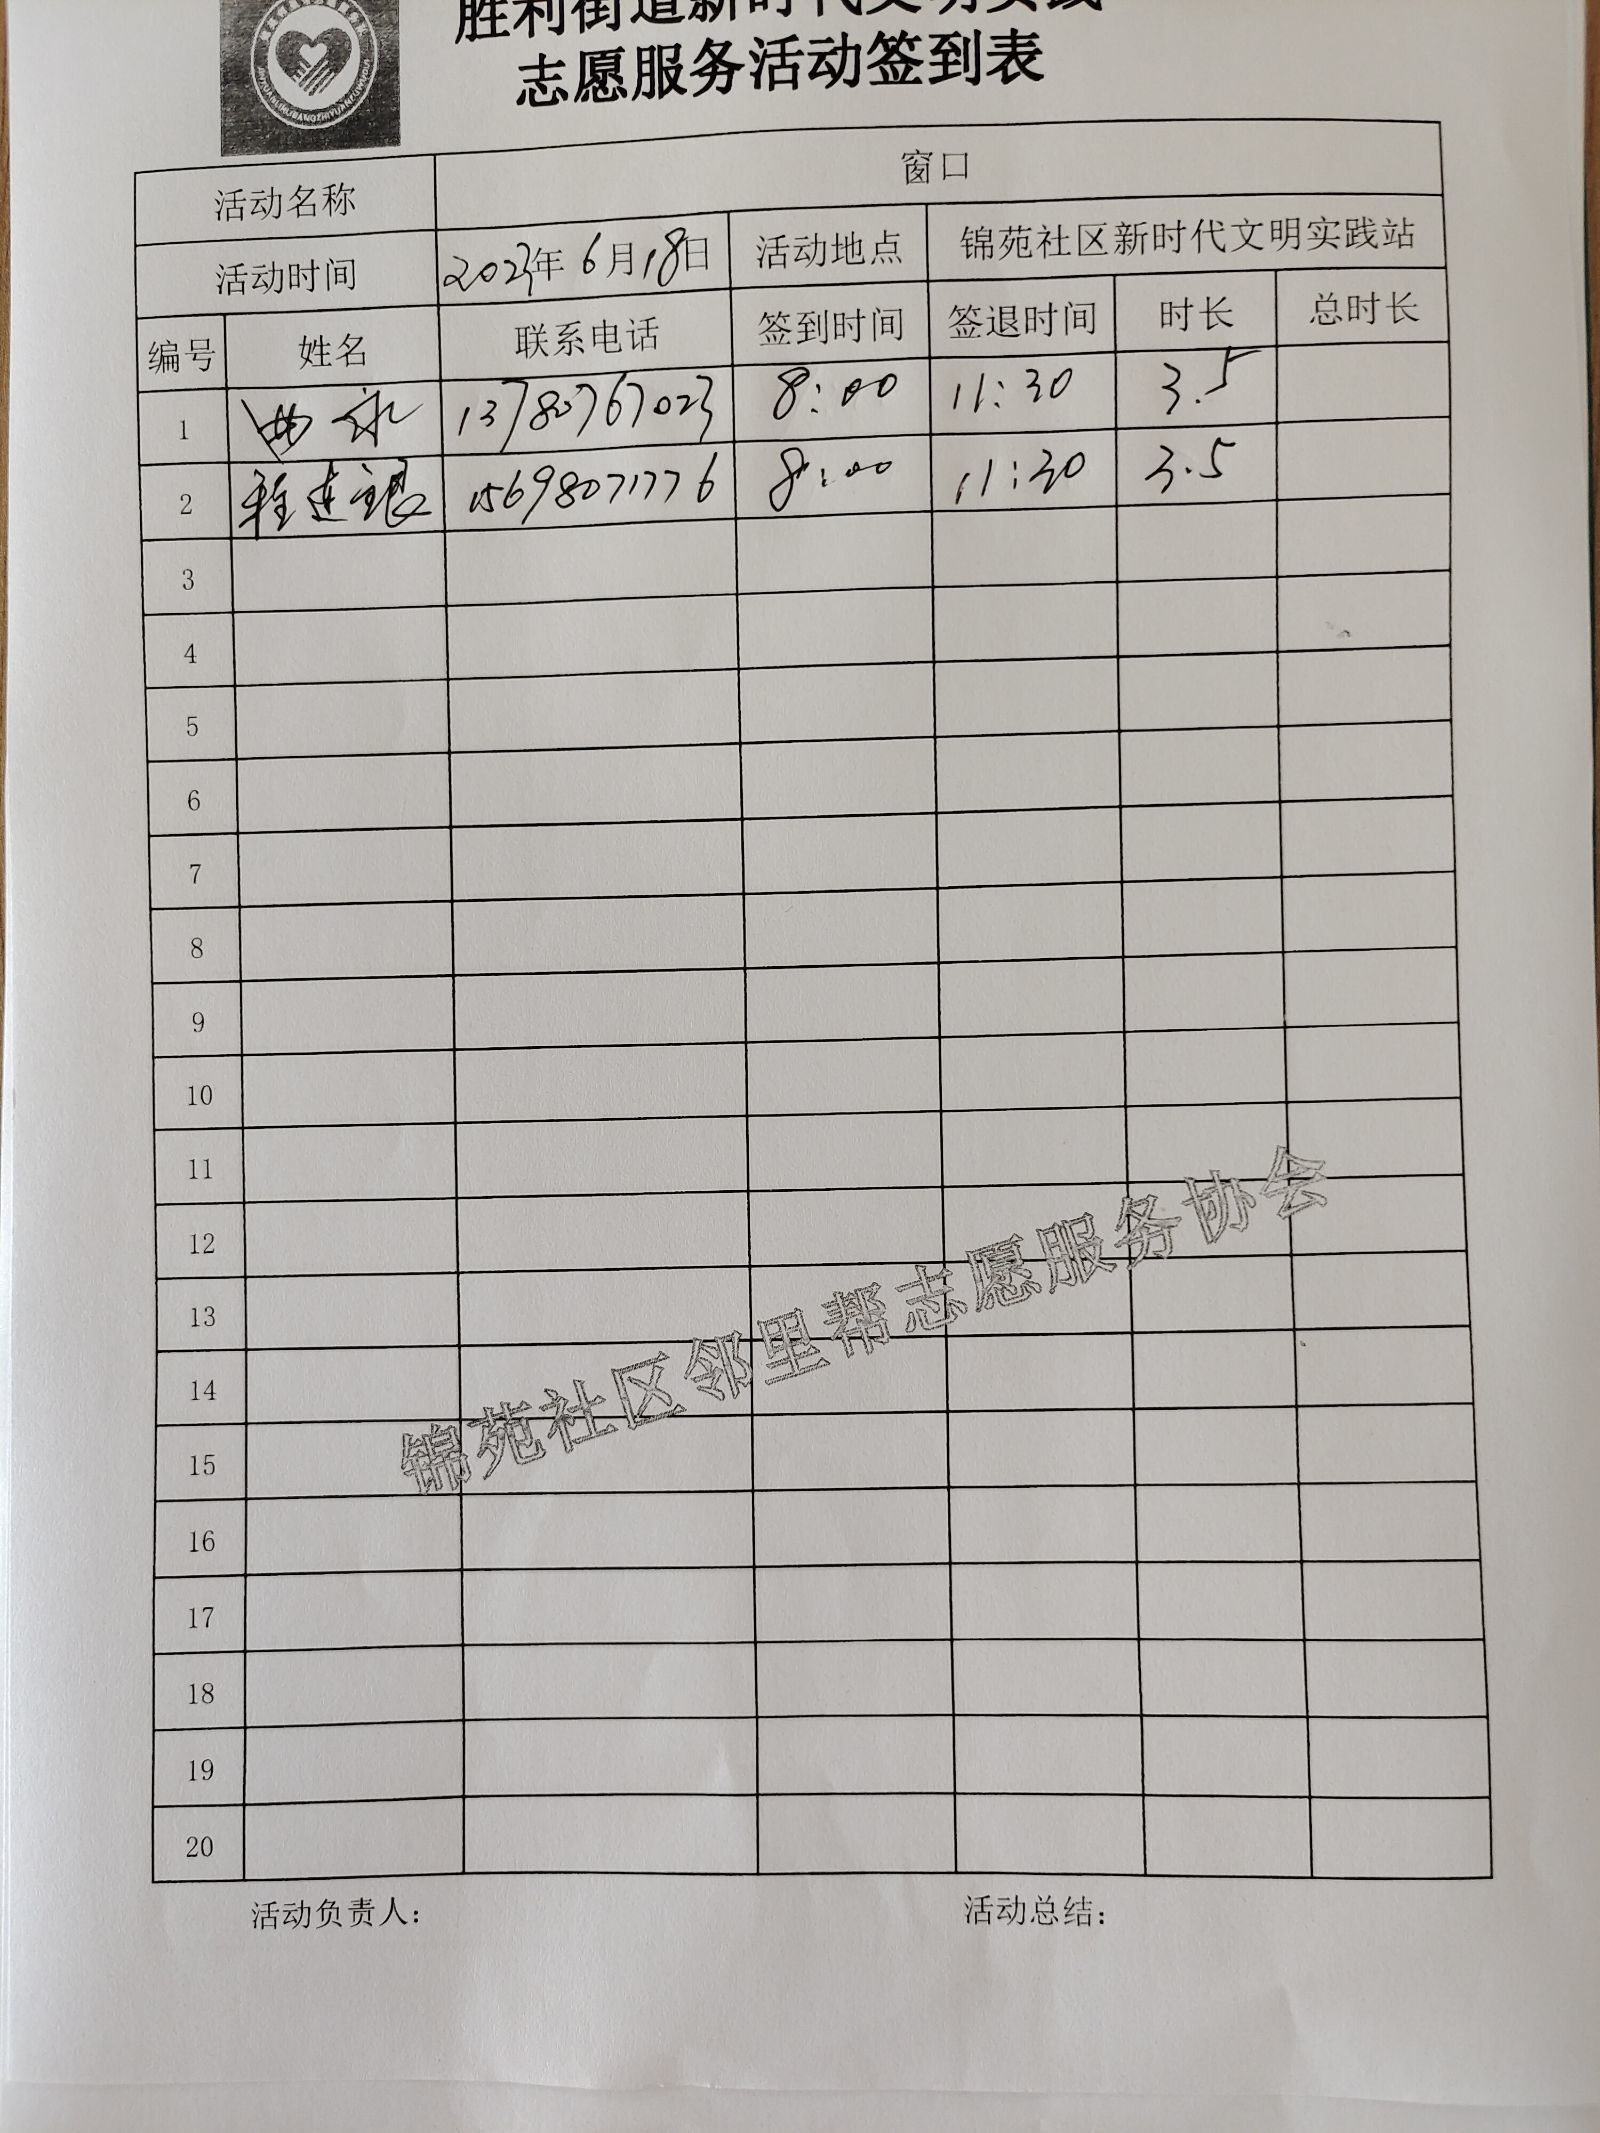 胜利街道新时代文明实践
志愿服务活动签到表
活动名称 窗口
活动时间 2023年6月18日 活动地点 锦苑社区新时代文明实践站
编号 姓名 联系电话 签到时间 签退时间 时长 总时长
1 曲永 13780767023 8:00 11:30 3.5
2 程连银 15698071776 8:00 11:30 3.5
3
4
5
6
7
8
9
10
11
12
13
14
15
16
17
18
19
20
锦苑社区邻里帮志愿服务协会
活动负责人： 活动总结：